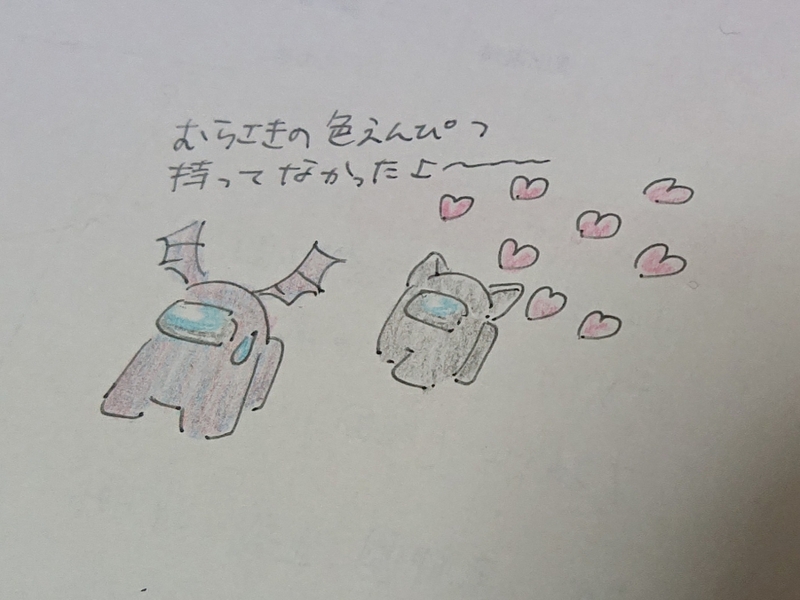 むらさきの色えんぴつ
持ってなかったよ～～～